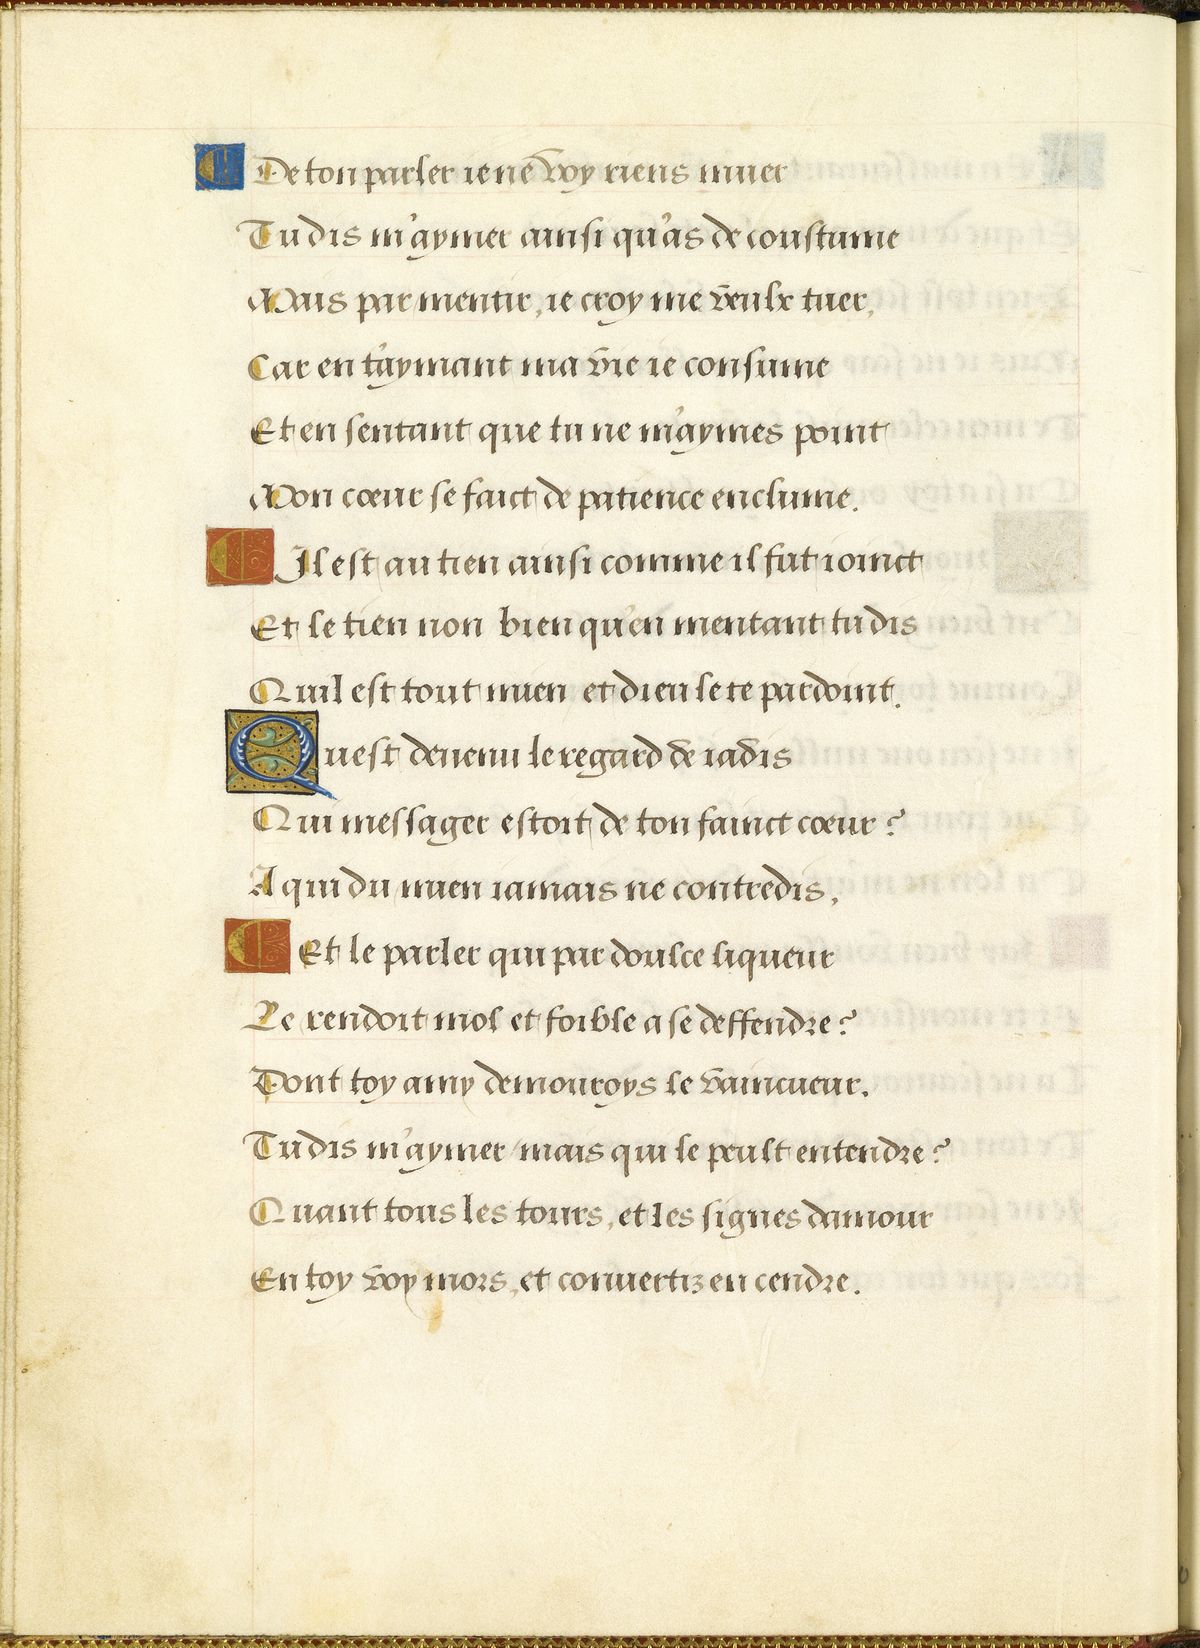 De ton parler ie ne voy riens muer
Tu dis m'aymer ainsi qu'as de coustume
Mais par mentir, ie croy me veulx tuer,
Car en t'aymant ma vie ie consume
Et en sentant que tu ne m'aymes point
Mon cœur se faict de patience enclume.
Il est au tien ainsi comme il fut ioinct
Et le tien non bien qu'en mentant tu dis
Quil est tout mien et dieu le te pardoint.
Quest deuenu le regard de iadis
Qui messager estoit de ton fainct cœur?
A qui du mien iamais ne contredis,
Et le parler qui par doulce liqueur
Le rendoit mol et foible a se deffendre?
Dont toy amy demouroys le vaincueur.
Tu dis m'aymer mais qui le peult entendre?
Quant tous les tours, et les signes damour
En toy voy mors, et conuertiz en cendre.